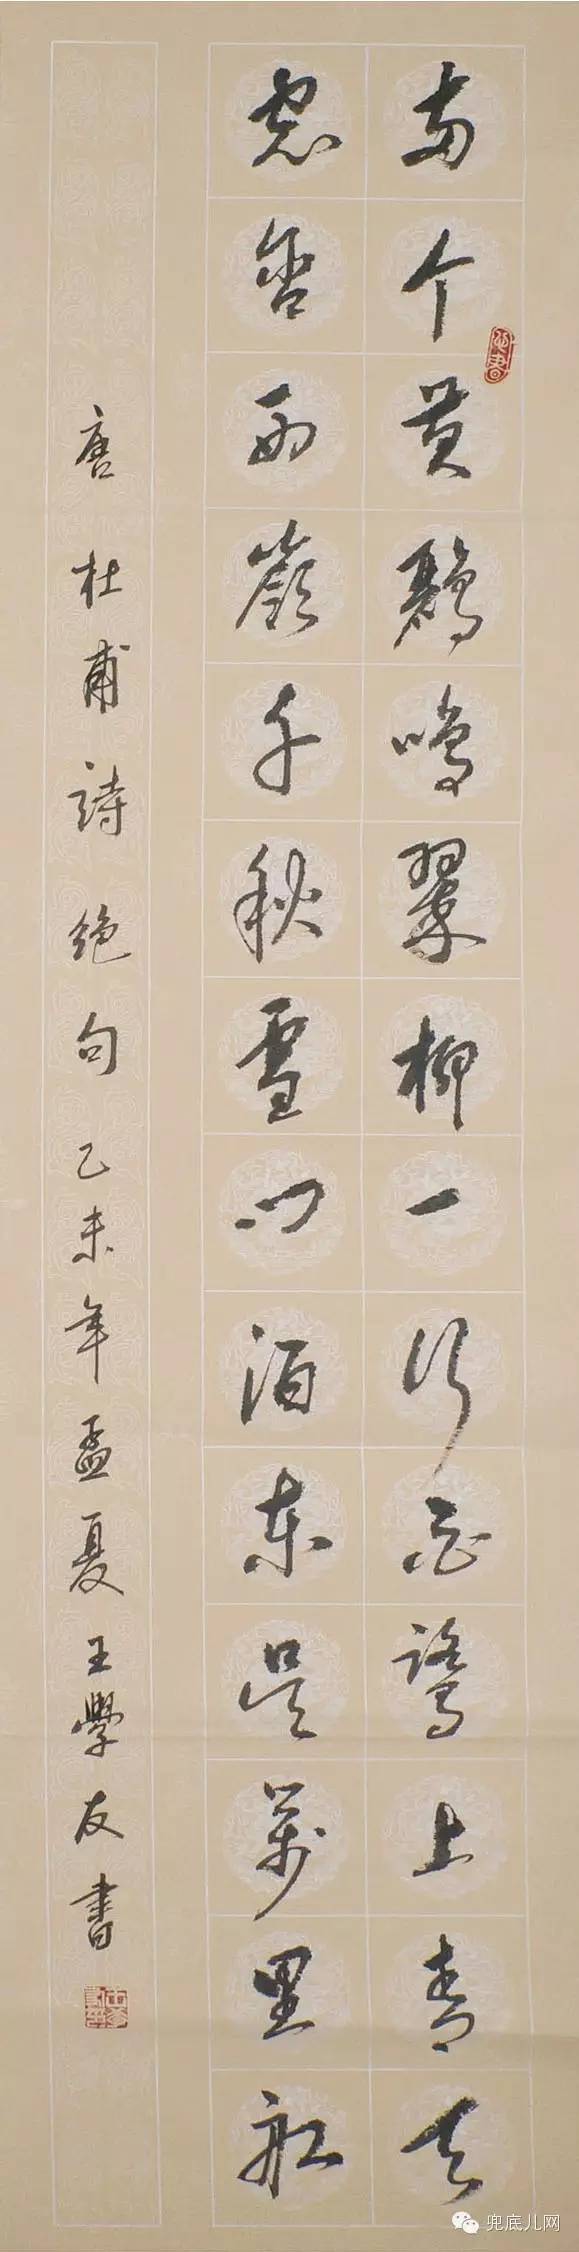 两个黄鹂鸣翠柳一行白鹭上青天
窓含西嶺千秋雪门泊东吴萬里船
唐杜甫詩绝句乙未年孟夏王學友書
兜底儿网